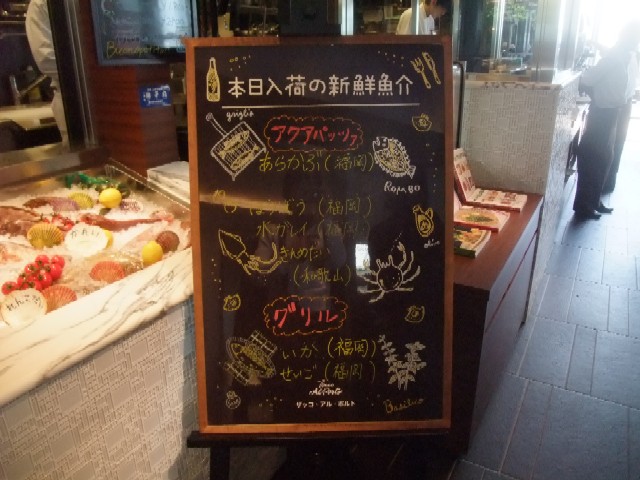 本日入荷の新鮮魚介
アクアパッツァ
あらかぶ(福岡)
ROMBO
ほうぼう(福岡)
水ガレイ(福岡)
きんめだい
(和歌山)
グリル
いか(福岡)
せいご(福岡)
ザッコ・アル・ポルト
Basilico
かれい
れんこ鯛